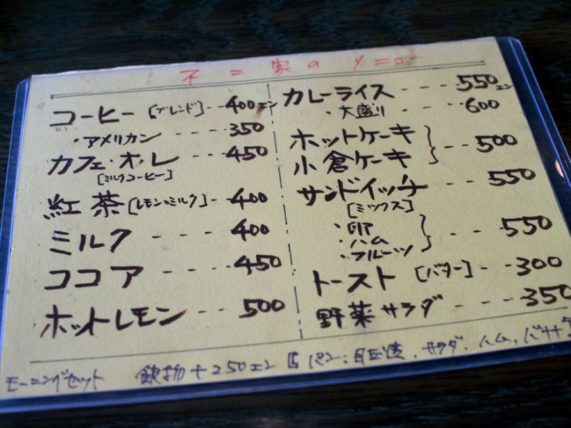 不二家のメニュー
コーヒー [ブレンド] --- 400エン
・アメリカン --- 350
カフェ・オ・レ --- 450
[ミルクコーヒー]
紅茶 [レモン・ミルク] --- 400
ミルク --- 400
ココア --- 450
ホットレモン --- 500
カレーライス --- 550エン
・大盛り --- 600
ホットケーキ
小倉ケーキ } --- 500
サンドイッチ --- 550
[ミックス]
・卵
・ハム } --- 550
・フルーツ
トースト [バター] --- 300
野菜サラダ --- 350
モーニングセット 飲物+250エン パン、目玉焼、サラダ、ハム、バナナ